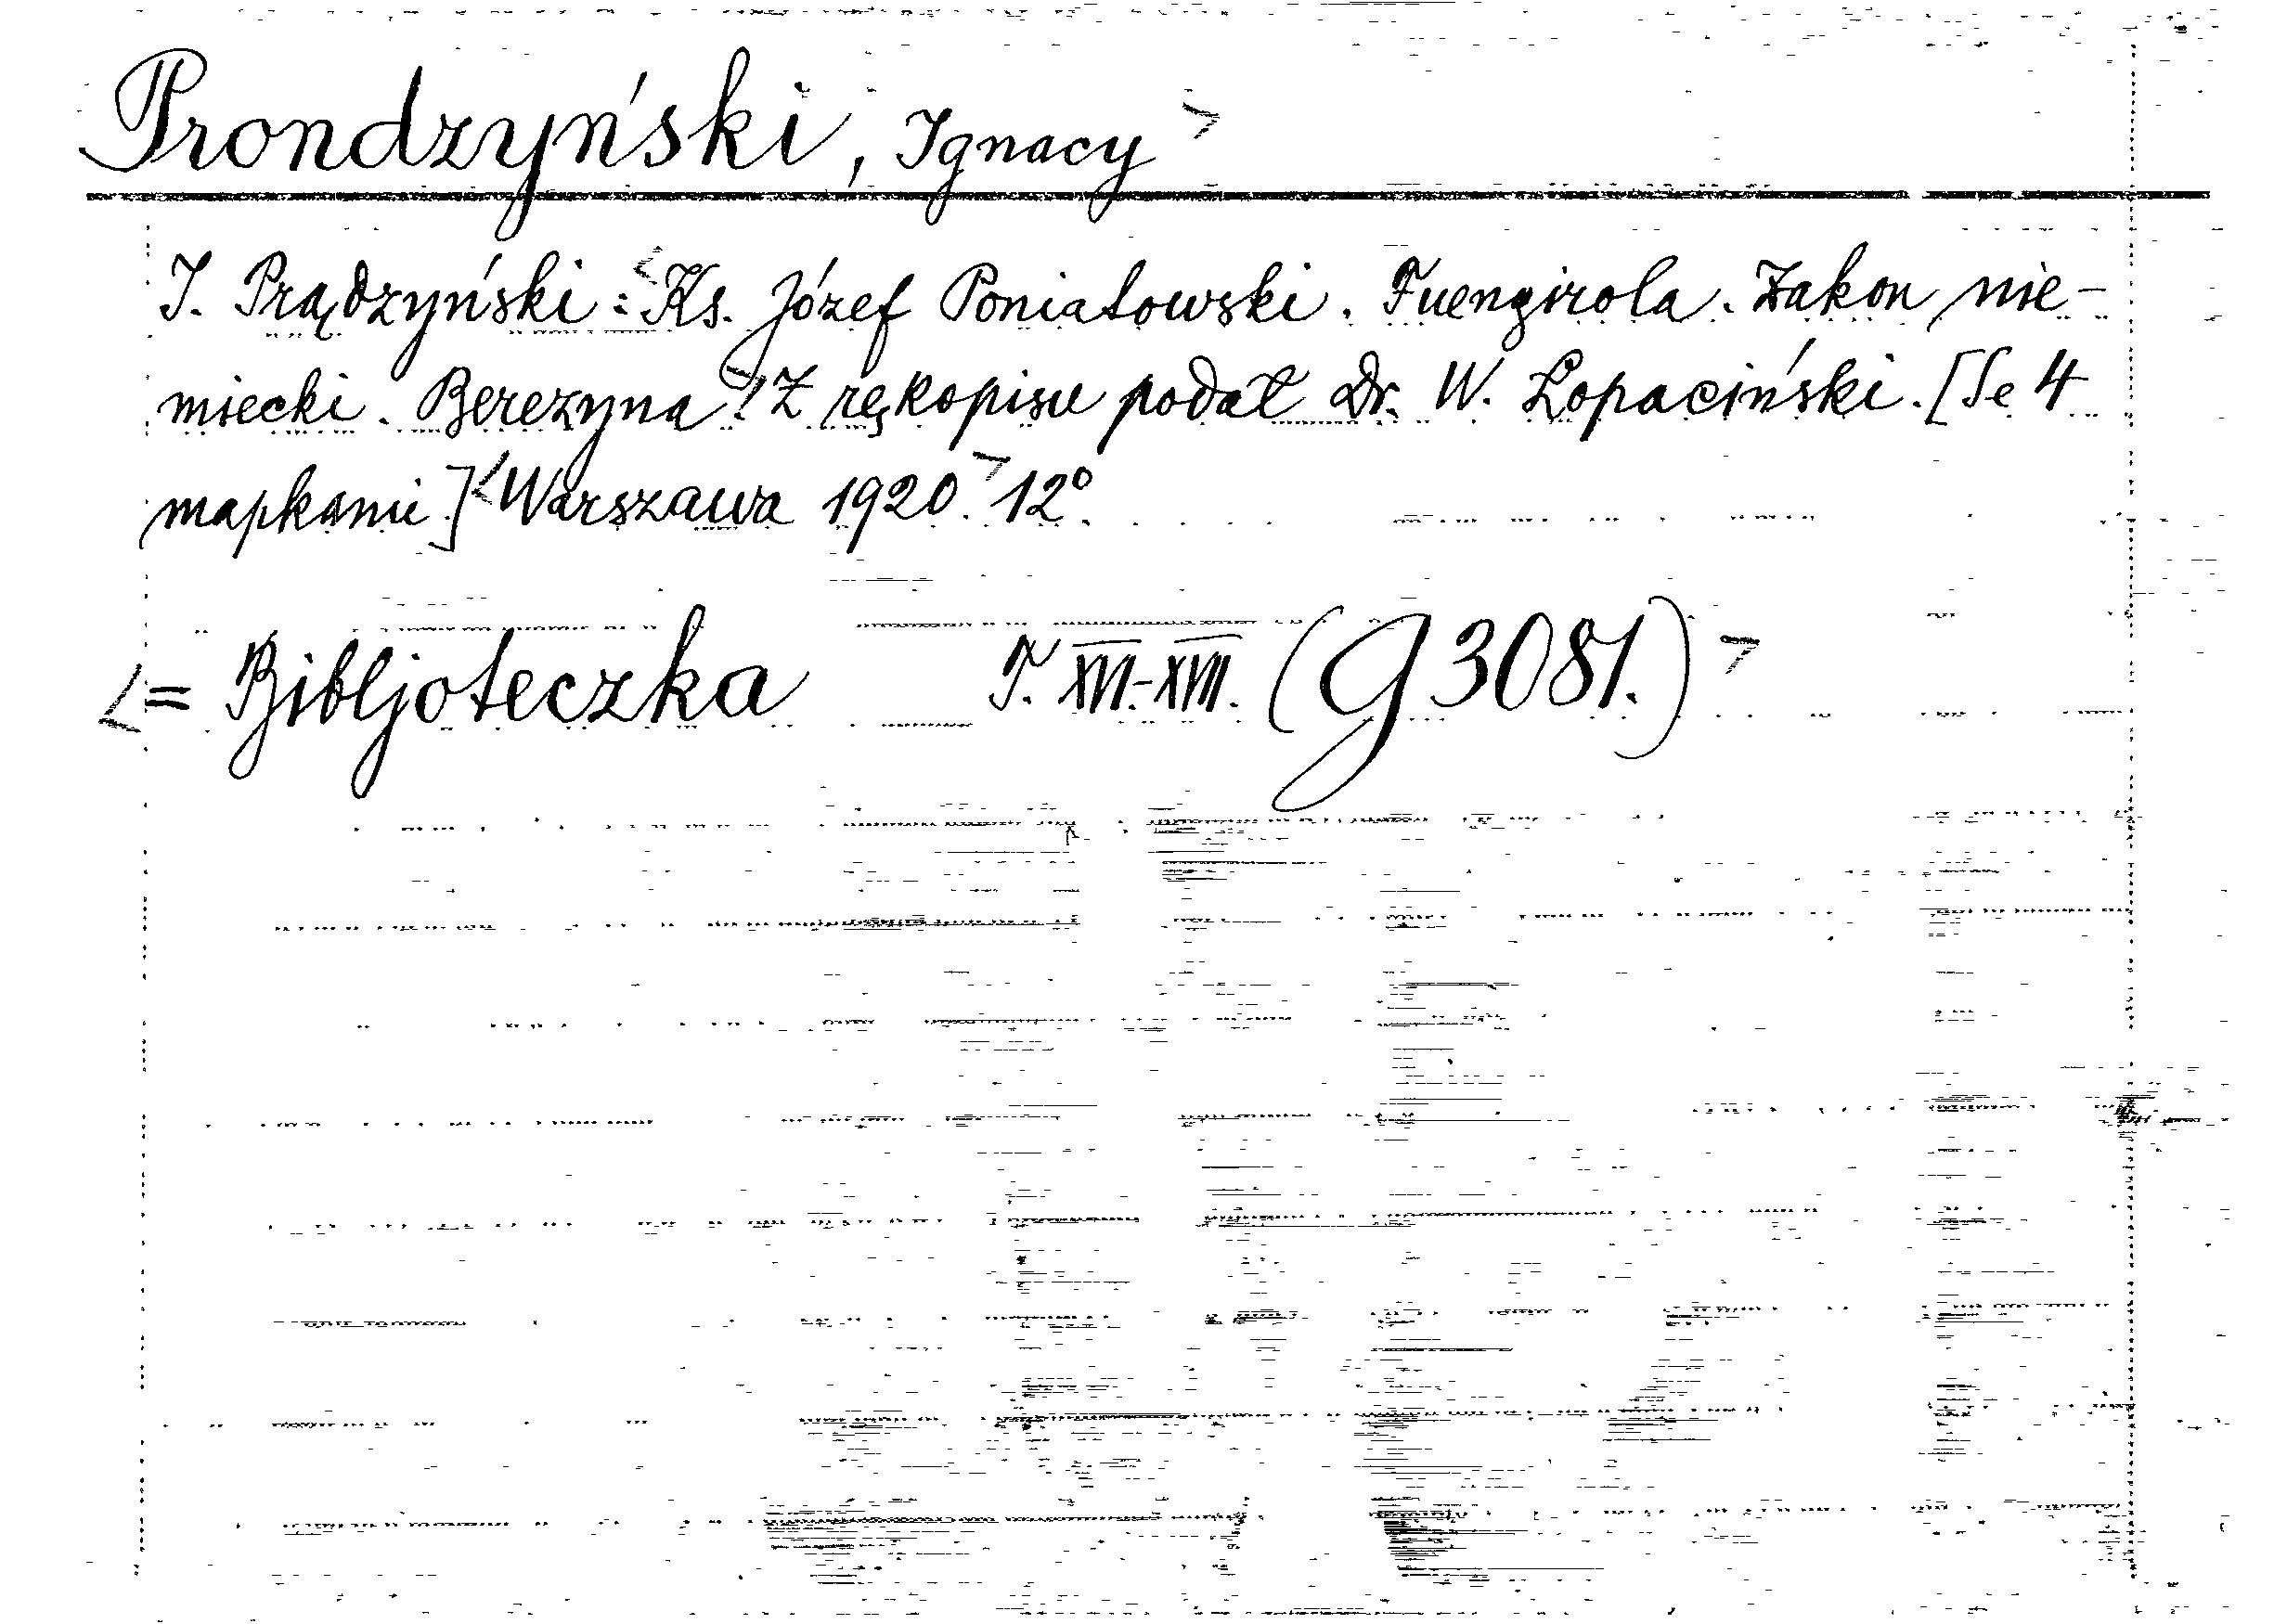 Prondzyński, Ignacy >
J. Prądzyński: <Ks. Józef Poniatowski. Fuengirola. Zakon nie-
miecki. Berezyna. > Z rękopisu podał Dr. W. Łopaciński. [Se 4
mapkami.] <Warszawa 1920.> 12°.
<= Bibljoteczka T. XVI.-XVII. (G 3081.) >